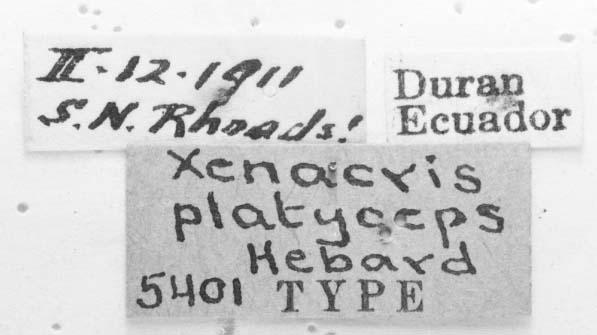 II-12-1911
S.N. Rhoads!
Duran
Ecuador
Xenacris
platyceps
Hebard
5401 TYPE